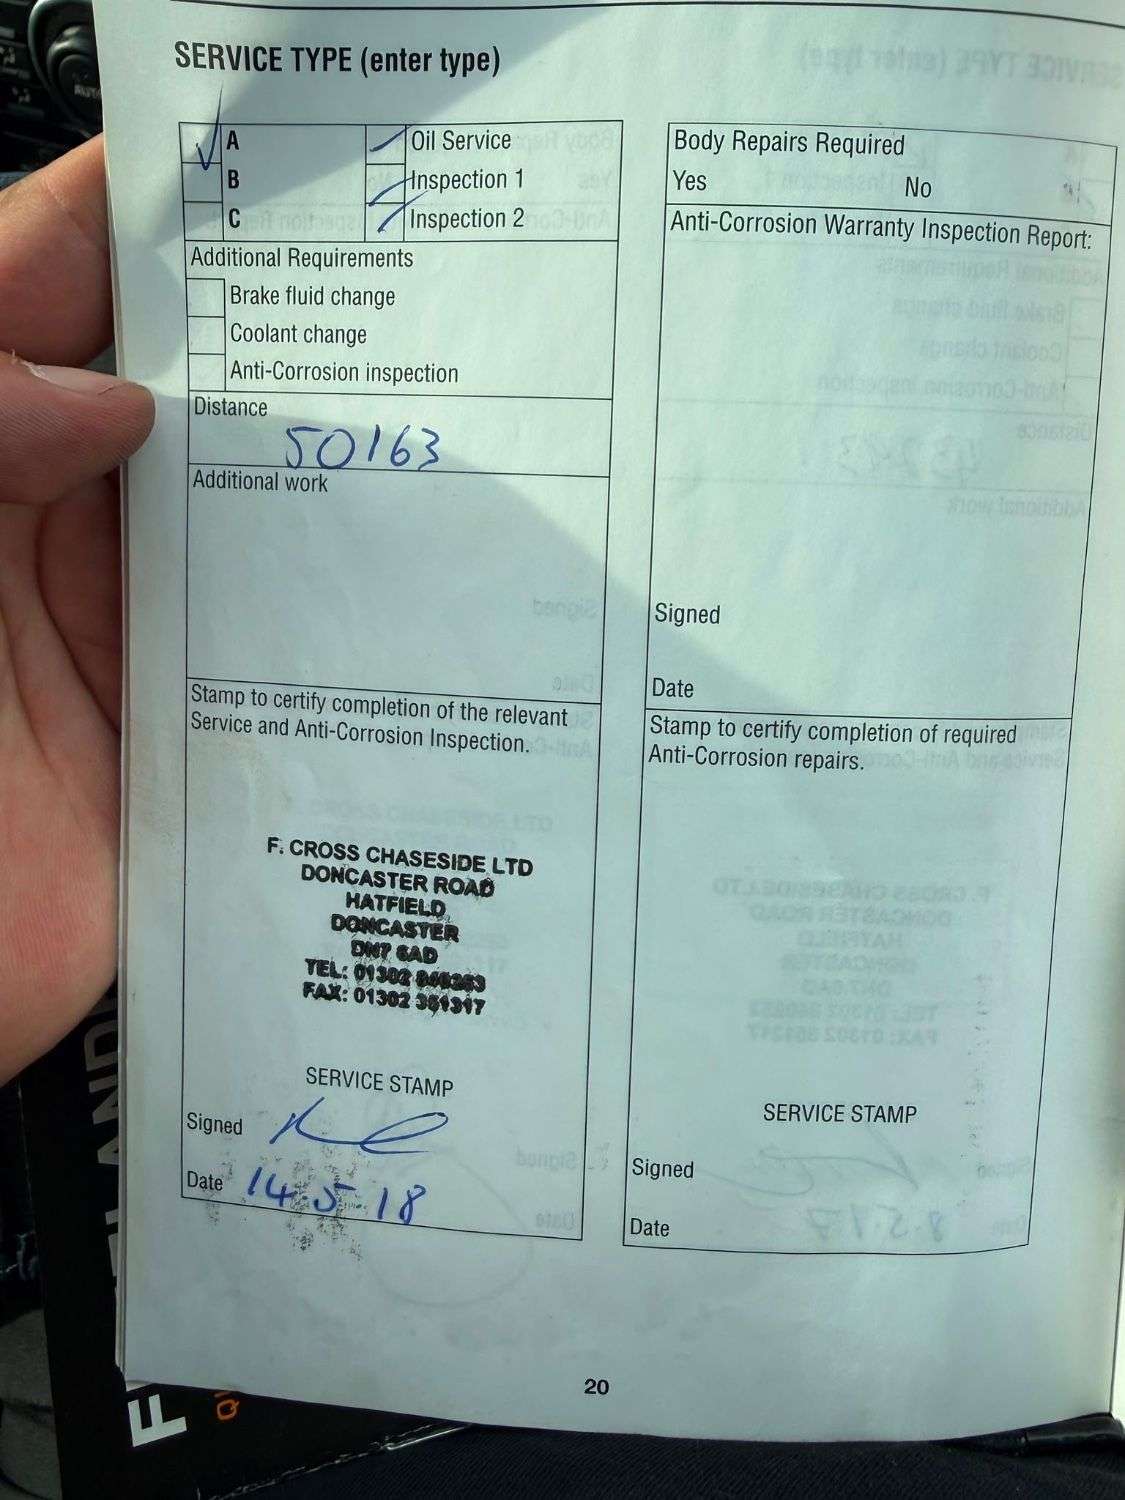 SERVICE TYPE (enter type)
A
Oil Service
B
Inspection 1
C
Inspection 2
Additional Requirements
Brake fluid change
Coolant change
Anti-Corrosion inspection
Distance
50163
Additional work
Stamp to certify completion of the relevant
Service and Anti-Corrosion Inspection.
F. CROSS CHASESIDE LTD
DONCASTER ROAD
HATFIELD
DONCASTER
DN7 6AD
TEL: 01302
FAX: 01302 351317
SERVICE STAMP
Signed
Date 14.5.18
Body Repairs Required
Yes No
Anti-Corrosion Warranty Inspection Report:
Signed
Date
Stamp to certify completion of required
Anti-Corrosion repairs.
SERVICE STAMP
Signed
Date
20